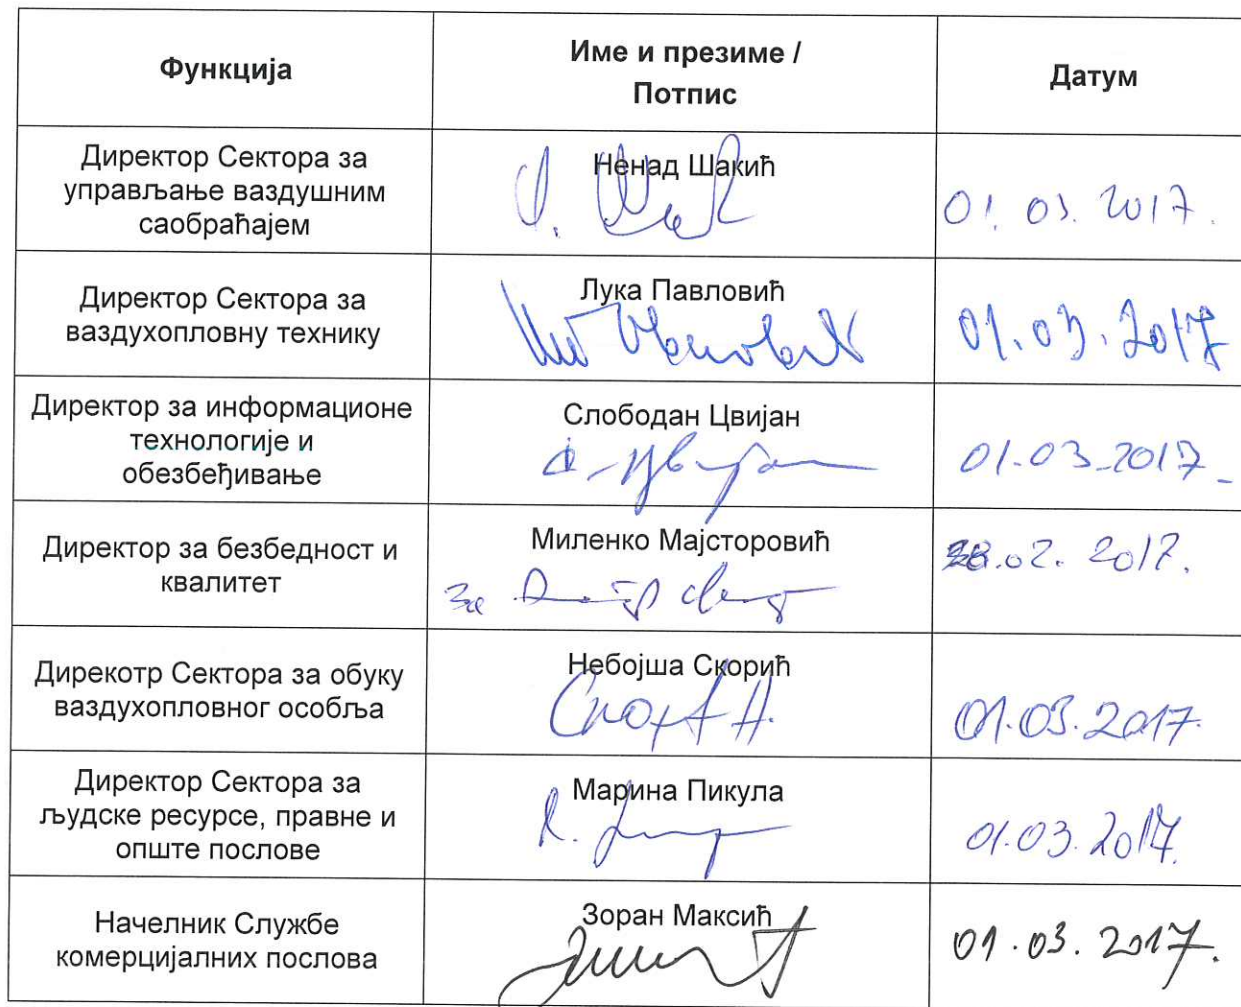 Функција
Име и презиме /
Потпис
Датум
Директор Сектора за
управљање ваздушним
саобраћајем
Ненад Шакић
01.03.2017.
Директор Сектора за
ваздухопловну технику
Лука Павловић
01.03.2017
Директор за информационе
технологије и
обезбеђивање
Слободан Цвијан
01-03-2017-
Директор за безбедност и
квалитет
Миленко Мајсторовић
за
28.02.2017.
Дирекотр Сектора за обуку
ваздухопловног особља
Небојша Скорић
01.03.2017.
Директор Сектора за
људске ресурсе, правне и
опште послове
Марина Пикула
01.03.2017.
Начелник Службе
комерцијалних послова
Зоран Максић
01.03.2017.